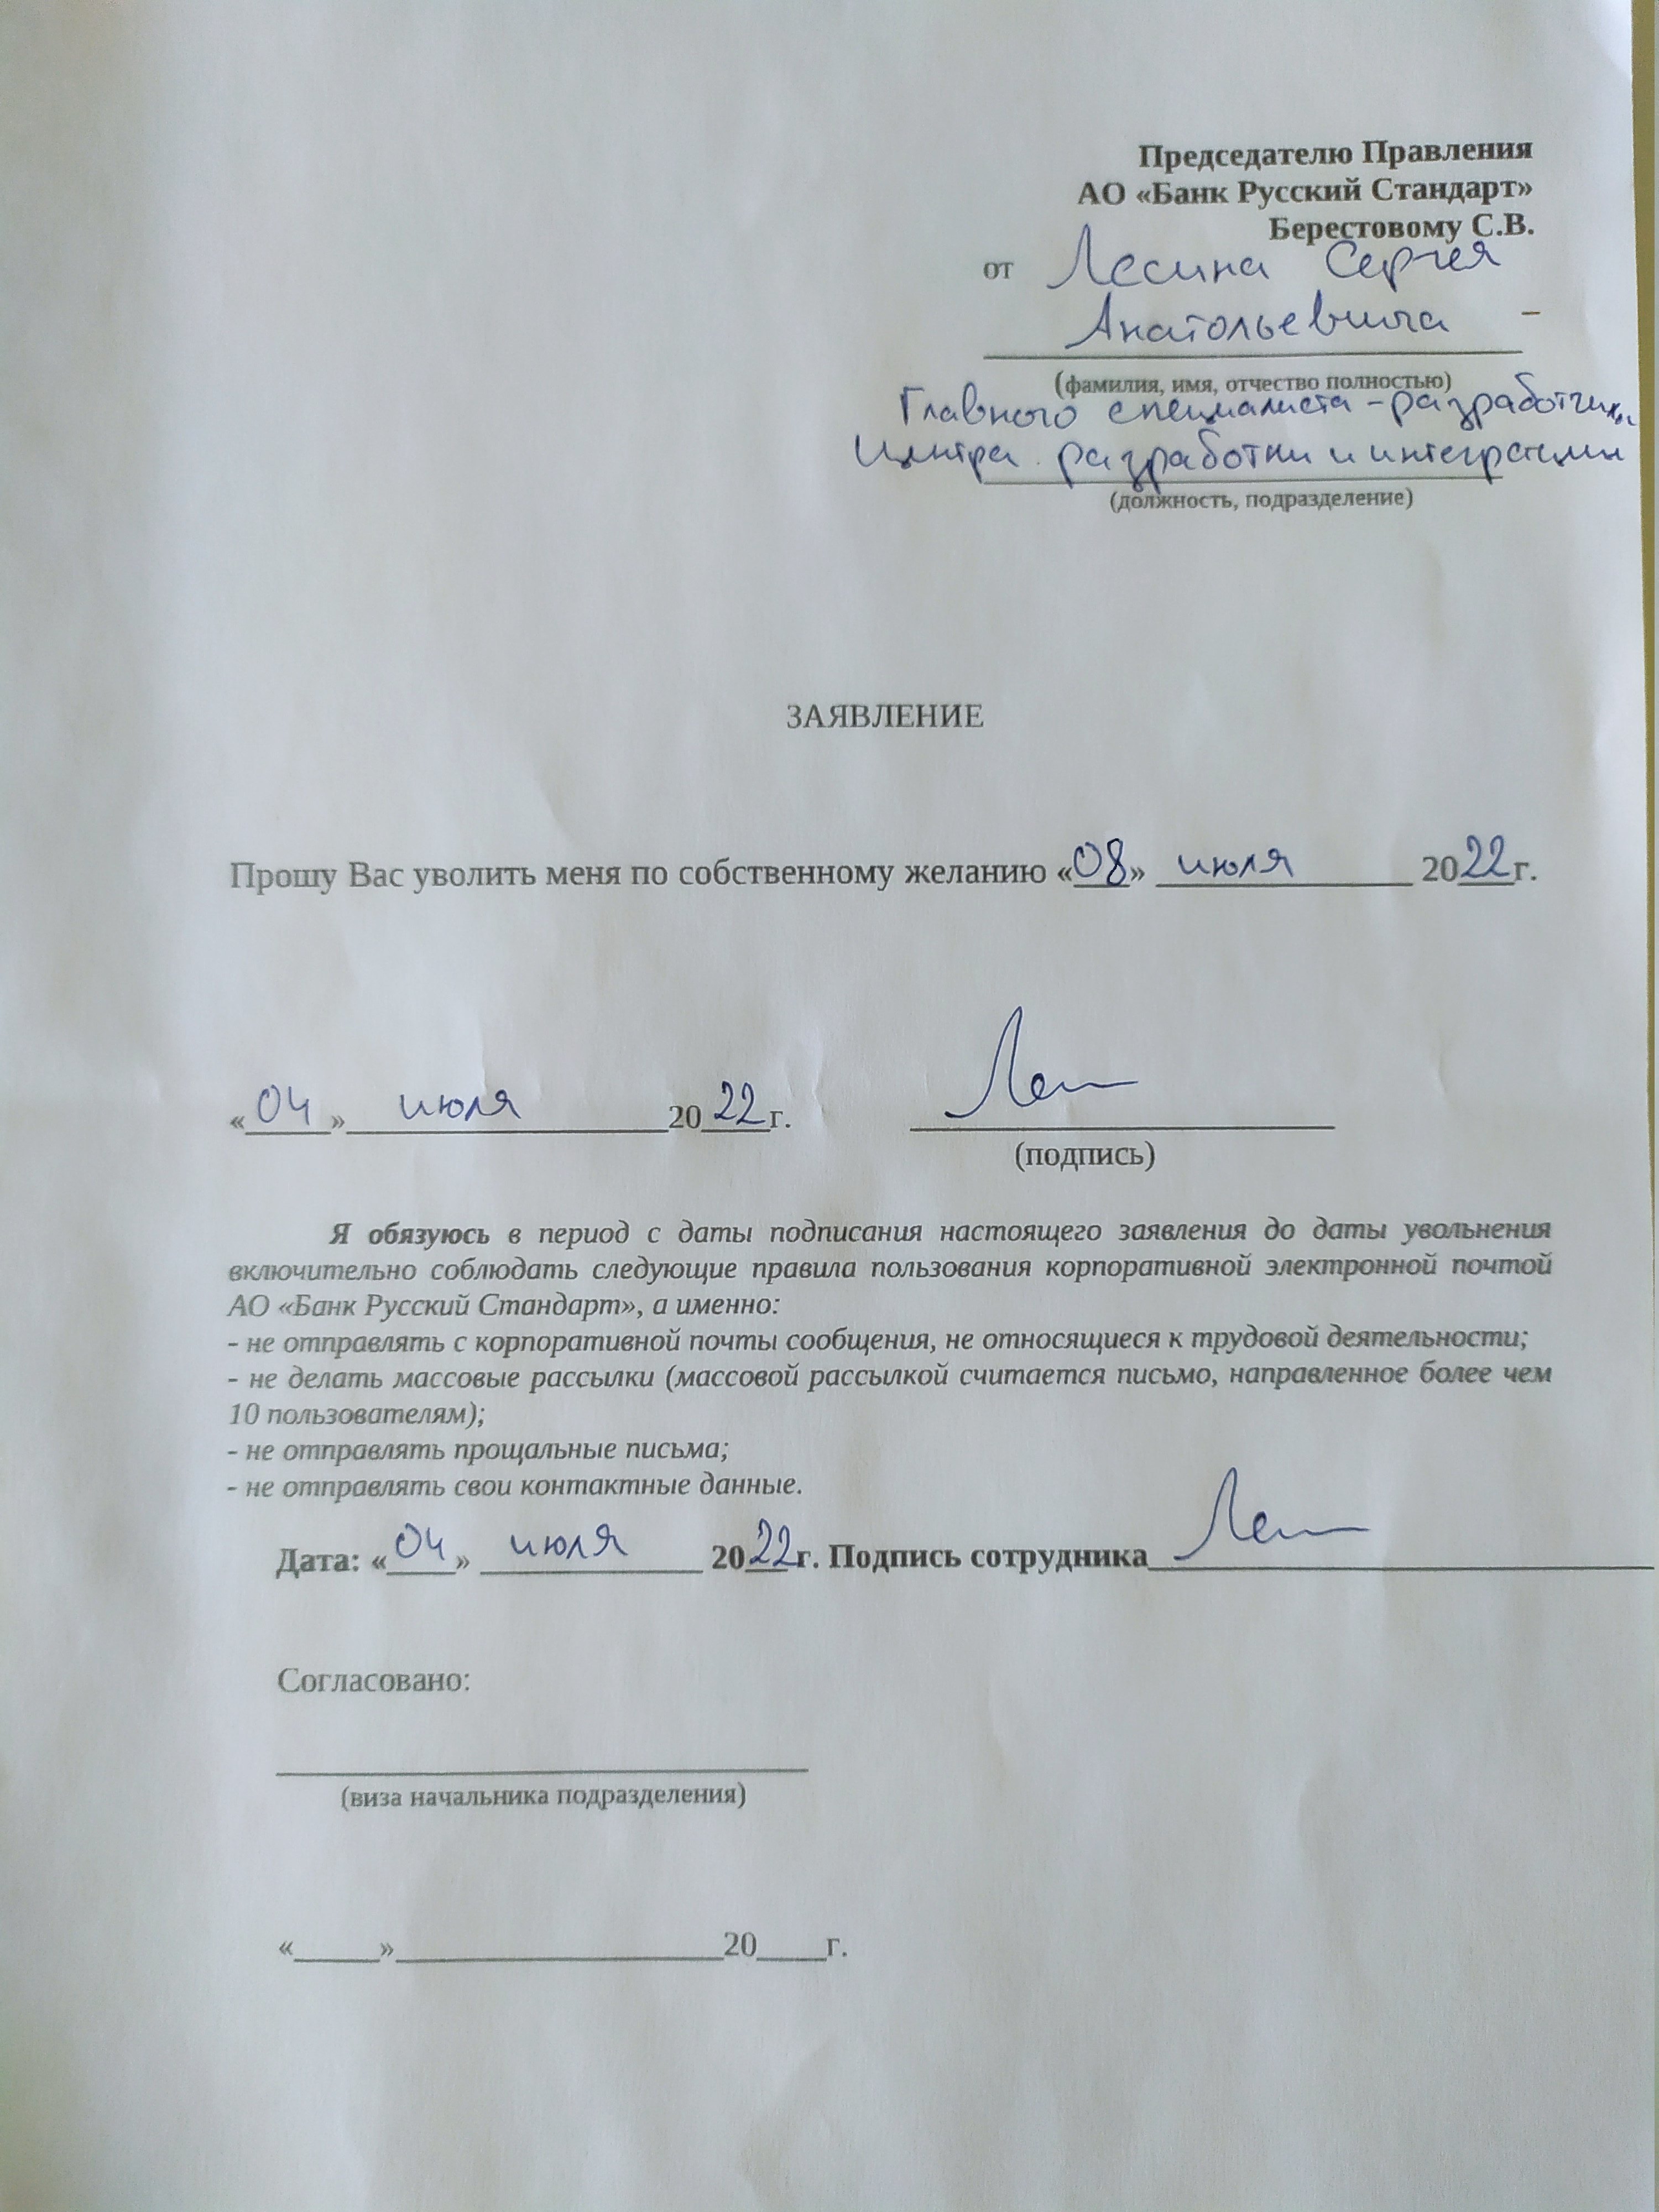 Председателю Правления
АО «Банк Русский Стандарт»
Берестовому С.В.
от Лесина Сергея
Анатольевича
(фамилия, имя, отчество полностью)
Главного специалиста-разработчика
Центра разработки и интеграции
(должность, подразделение)
ЗАЯВЛЕНИЕ
Прошу Вас уволить меня по собственному желанию «08» июля 2022г.
«04» июля 2022г.
(подпись)
Я обязуюсь в период с даты подписания настоящего заявления до даты увольнения
включительно соблюдать следующие правила пользования корпоративной электронной почтой
АО «Банк Русский Стандарт», а именно:
- не отправлять с корпоративной почты сообщения, не относящиеся к трудовой деятельности;
- не делать массовые рассылки (массовой рассылкой считается письмо, направленное более чем
10 пользователям);
- не отправлять прощальные письма;
- не отправлять свои контактные данные.
Дата: «04» июля 2022г. Подпись сотрудника
Согласовано:
(виза начальника подразделения)
«_____»____________________20____г.